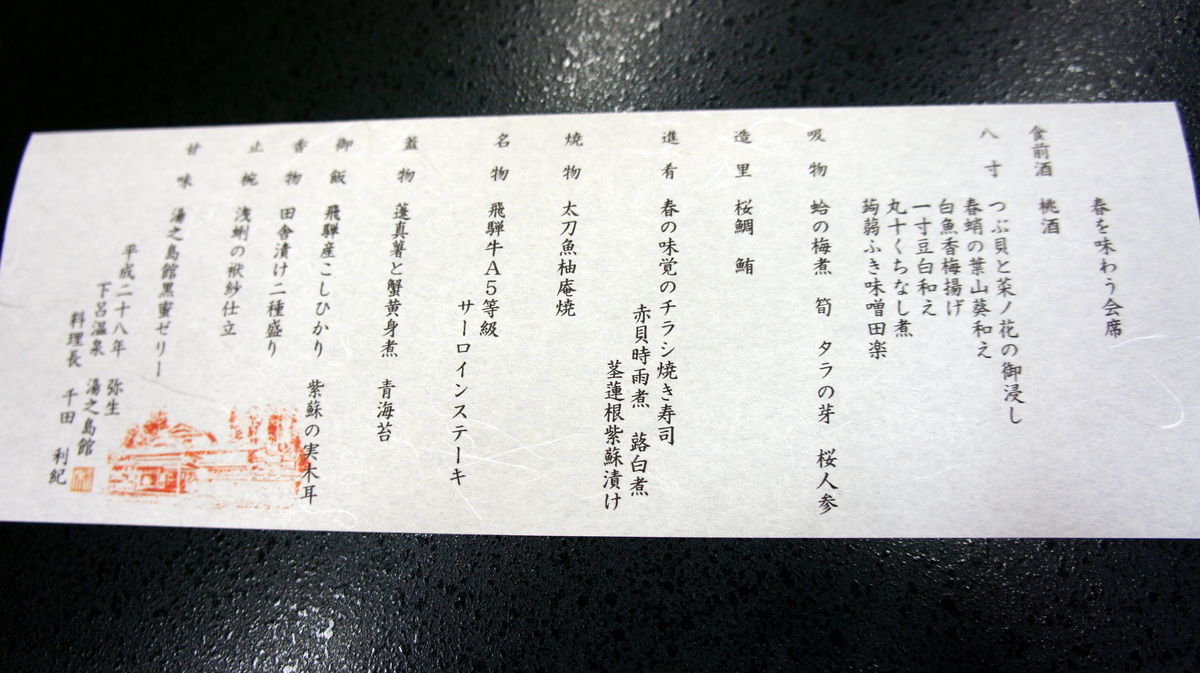 春を味わう会席
食前酒 桃酒
八寸 つぶ貝と菜ノ花の御浸し
春蛸の葉山葵和え
白魚香梅揚げ
一寸豆白和え
丸十くちなし煮
蒟蒻ふき味噌田楽
吸物 蛤の梅煮 筍 タラの芽 桜人参
造里 桜鯛 鮪
進肴 春の味覚のチラシ焼き寿司
赤貝時雨煮 蕗白煮
茎蓮根紫蘇漬け
焼物 太刀魚柚庵焼
名物 飛騨牛A5等級
サーロインステーキ
蓋物 蓬真薯と蟹黄身煮 青海苔
御飯 飛騨産こしひかり 紫蘇の実木耳
香物 田舎漬け二種盛り
止椀 浅蜊の袱紗仕立
甘味 湯之島館黒蜜ゼリー
平成二十八年 弥生
下呂温泉 湯之島館
料理長 千田 利紀